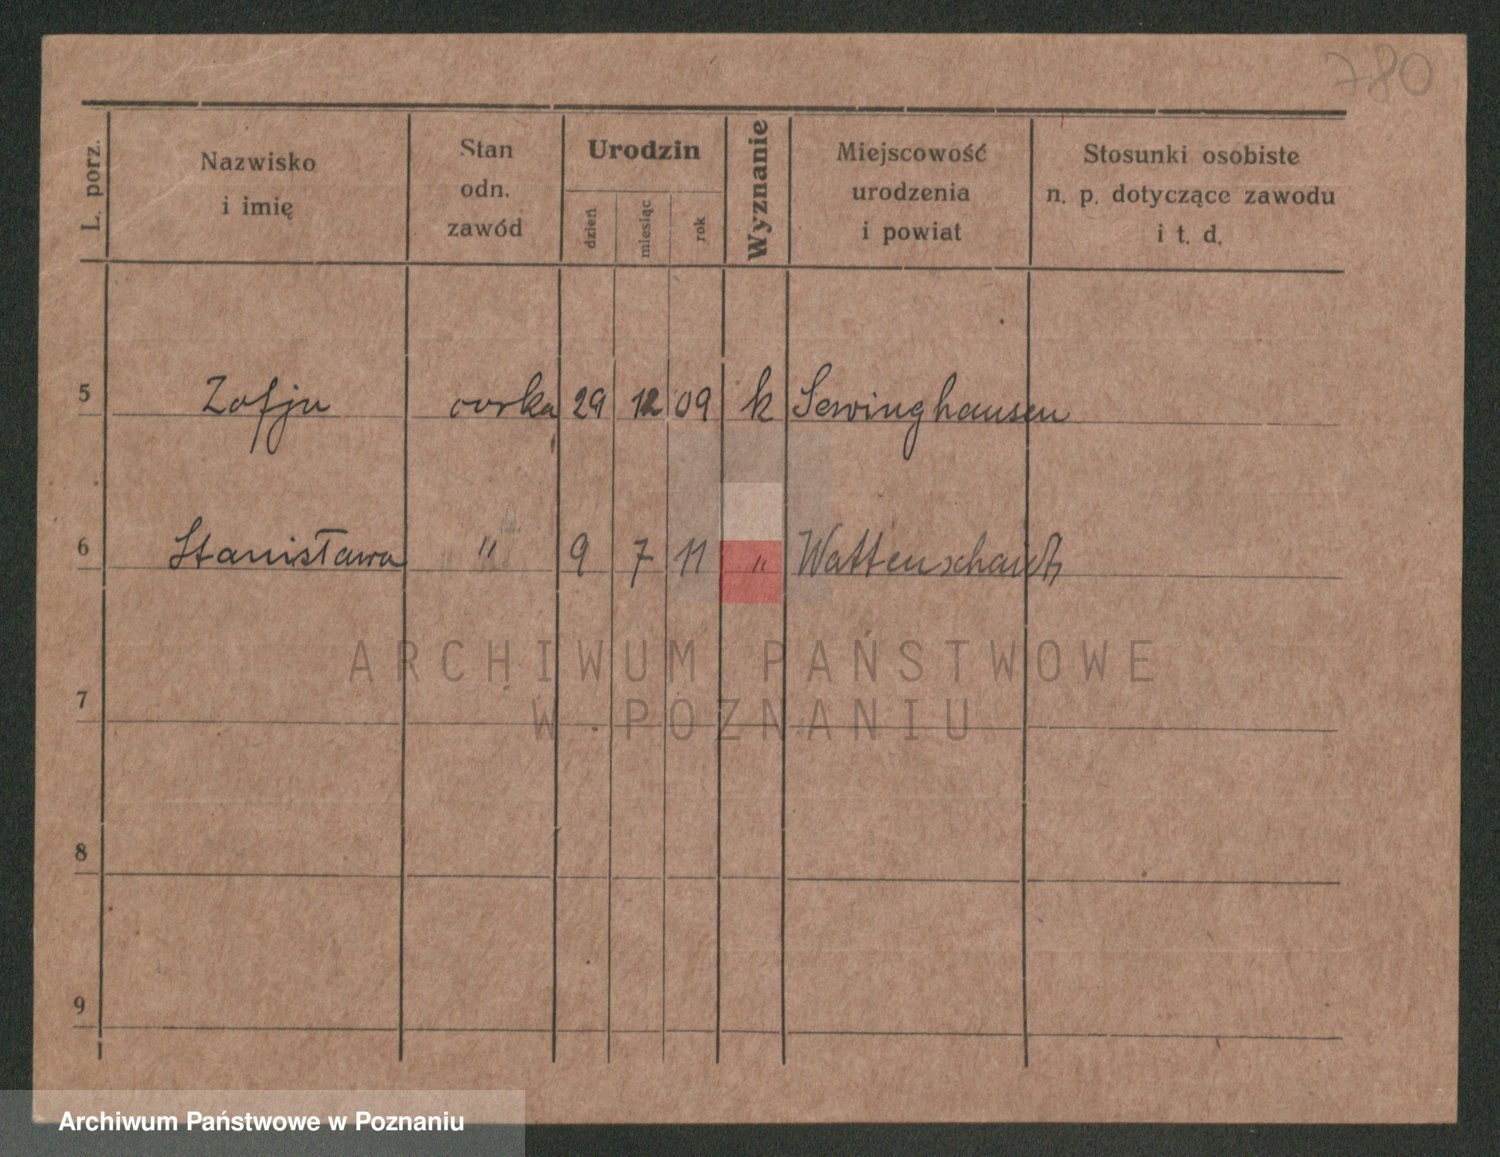 780
L. porz.
Nazwisko
i imię
Stan
odn.
zawód
Urodzin
dzień
miesiąc
rok
Wyznanie
Miejscowość
urodzenia
i powiat
Stosunki osobiste
n. p. dotyczące zawodu
i t. d.
5 Zofja córka 29 12 09 k Sevinghausen
6 Stanisława " 9 7 11 " Wattenscheidt
7
8
9
ARCHIWUM PAŃSTWOWE
W POZNANIU
Archiwum Państwowe w Poznaniu